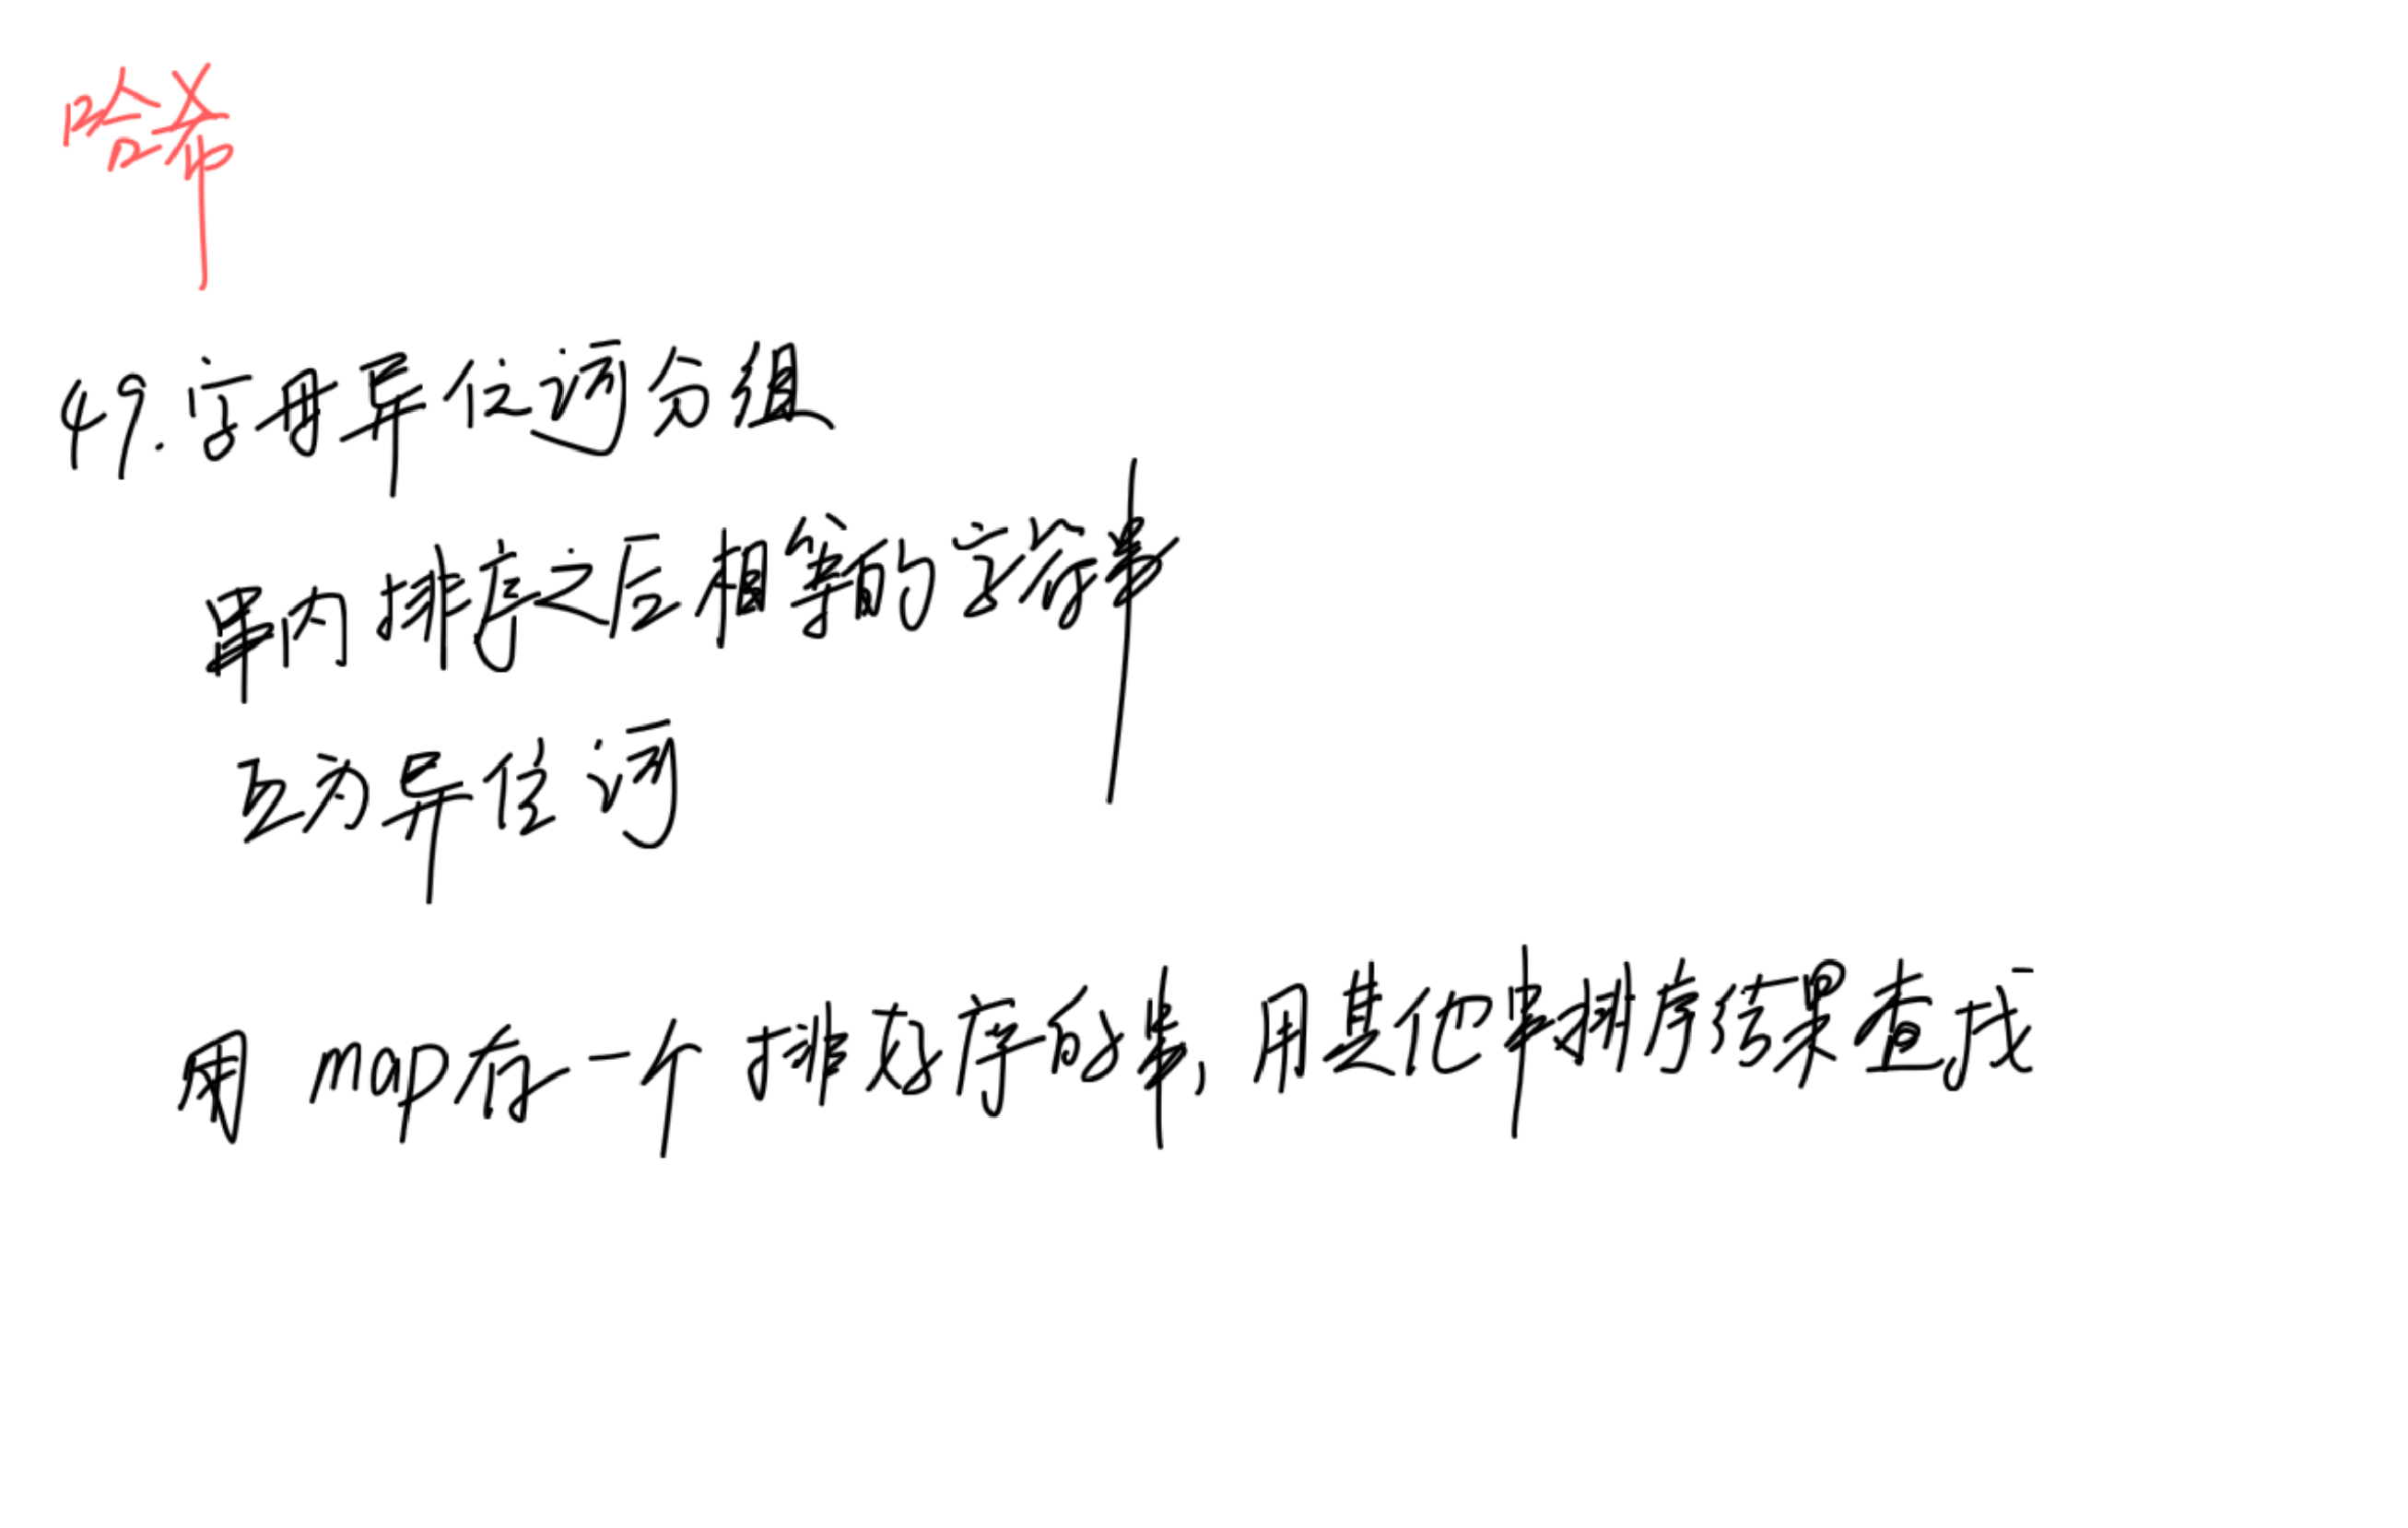 哈希
49.字母异位词分组
串内排序之后相等的字符串
互为异位词
用map存一个排好序的串,用其他串排序结果查找